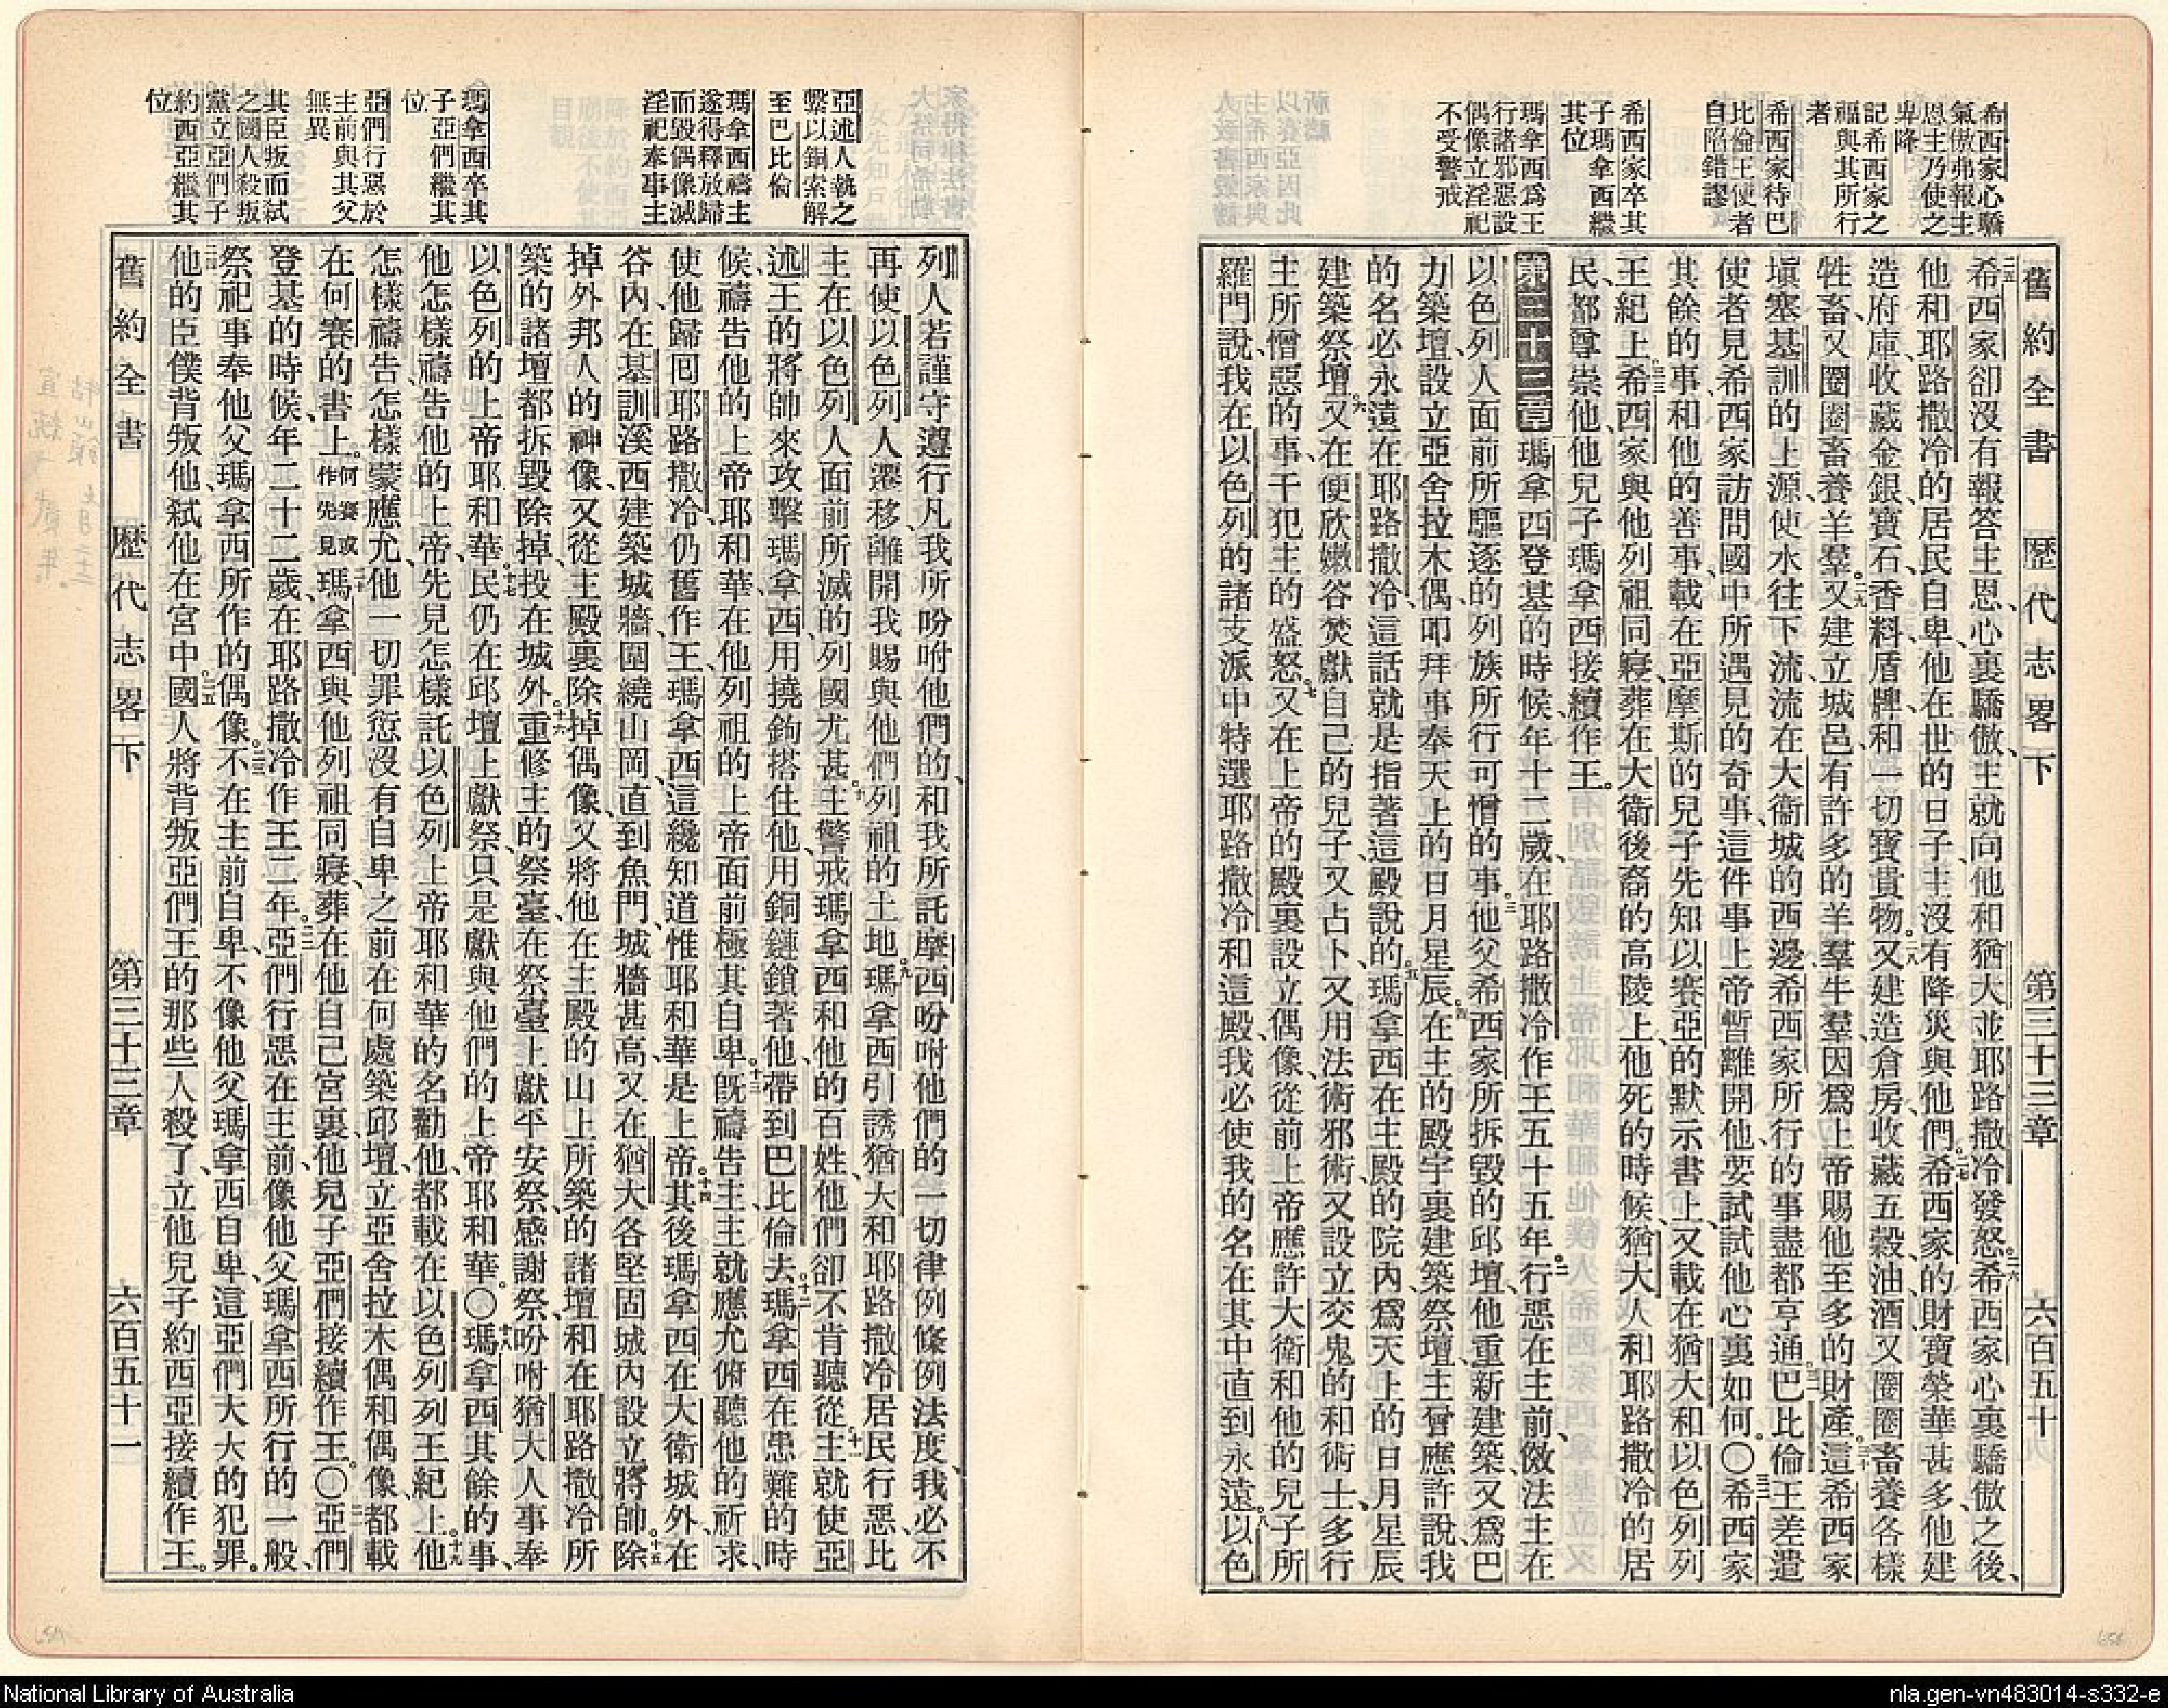 舊約全書 歷代志畧下 第三十三章 六百五十
希西家心驕
氣傲弗報主
恩主乃使之
卑降
記希西家之
軀與其所行
者
希西家待巴
比倫王使者
自陷錯謬
希西家卒其
子瑪拿西繼
其位
瑪拿西爲王
行諸邪惡設
偶像立淫祀
不受警戒
二五希西家卻沒有報答主恩、心裏驕傲、主就向他和猶大並耶路撒冷發怒。二六希西家心裏驕傲之後、
他和耶路撒冷的居民自卑、他在世的日子、主沒有降災與他們。二七希西家的財寶榮華甚多、他建
造府庫、收藏金銀、寶石、香料、盾牌、和一切寶貴物。二八又建造倉房、收藏五穀、油、酒、又圈圈畜養各樣
牲畜、又圈圈畜養羊羣。二九又建立城邑、有許多的羊羣牛羣、因爲上帝賜他至多的財產。三十這希西家
塡塞基訓的上源、使水往下流、流在大衞城的西邊、希西家所行的事盡都亨通。三一巴比倫王差遣
使者見希西家、訪問國中所遇見的奇事、這件事上帝暫離開他、要試試他心裏如何。〇三二希西家
其餘的事、和他的善事、載在亞摩斯的兒子先知以賽亞的默示書上、又載在猶大和以色列列
王紀上。三三希西家與他列祖同寢、葬在大衞後裔的高陵上、他死的時候、猶大人和耶路撒冷的居
民、都尊崇他、他兒子瑪拿西接續作王。
第三十三章 瑪拿西登基的時候、年十二歲、在耶路撒冷作王五十五年。二行惡在主前、傚法主在
以色列人面前所驅逐的列族所行可憎的事。三他父希西家所拆毀的邱壇、他重新建築、又爲巴
力築壇、設立亞舍拉木偶、叩拜事奉天上的日月星辰。四在主的殿宇裏建築祭壇、主曾應許說、我
的名必永遠在耶路撒冷、這話就是指著這殿說的。五瑪拿西在主殿的院內、爲天上的日月星辰
建築祭壇。六又在便欣嫩谷焚獻自己的兒子、又占卜、又用法術邪術、又設立交鬼的和術士、多行
主所憎惡的事、干犯主的盛怒。七又在上帝的殿裏設立偶像、從前上帝應許大衞和他的兒子所
羅門說、我在以色列的諸支派中特選耶路撒冷和這殿、我必使我的名在其中直到永遠。八以色
亞述人執之
繫以銅索解
至巴比倫
瑪拿西禱主
遂得釋放歸
而毀偶像滅
淫祀奉事主
瑪拿西卒其
子亞們繼其
位
亞們行惡於
主前與其父
無異
其臣叛而弑
之國人殺叛
黨立亞們子
約西亞繼其
位
列人若謹守遵行凡我所吩咐他們的、和我所託摩西吩咐他們的一切律例條例法度、我必不
再使以色列人遷移、離開我賜與他們列祖的土地。九瑪拿西引誘猶大和耶路撒冷居民行惡、比
主在以色列人面前所滅的列國尤甚。十主警戒瑪拿西和他的百姓、他們卻不肯聽從。十一主就使亞
述王的將帥來攻擊瑪拿西、用撓鉤搭住他、用銅鏈鎖著他、帶到巴比倫去。十二瑪拿西在患難的時
候、禱告他的上帝耶和華、在他列祖的上帝面前極其自卑。十三旣禱告主、主就應允俯聽他的祈求、
使他歸囘耶路撒冷、仍舊作王、瑪拿西這纔知道惟耶和華是上帝。十四其後瑪拿西在大衞城外、在
谷內、在基訓溪西建築城牆、圍繞山岡、直到魚門、城牆甚高、又在猶大各堅固城內設立將帥。十五除
掉外邦人的神像、又從主殿裏除掉偶像、又將他在主殿的山上所築的諸壇、和在耶路撒冷所
築的諸壇都拆毀除掉、投在城外。十六重修主的祭臺、在祭臺上獻平安祭、感謝祭、吩咐猶大人事奉
以色列的上帝耶和華。十七民仍在邱壇上獻祭、只是獻與他們的上帝耶和華。〇十八瑪拿西其餘的事、
他怎樣禱告他的上帝、先見怎樣託以色列上帝耶和華的名勸他、都載在以色列列王紀上。十九他
怎樣禱告、怎樣蒙應允、他一切罪愆、沒有自卑之前、在何處築邱壇、立亞舍拉木偶和偶像、都載
在何賽的書上。何賽或作先見二十瑪拿西與他列祖同寢、葬在他自己宮裏、他兒子亞們接續作王。〇二一亞們
登基的時候、年二十二歲、在耶路撒冷作王二年。二二亞們行惡在主前、像他父瑪拿西所行的一般、
祭祀事奉他父瑪拿西所作的偶像。二三不在主前自卑、不像他父瑪拿西自卑、這亞們大大的犯罪。
二四他的臣僕背叛他、弑他在宮中。二五國人將背叛亞們王的那些人殺了、立他兒子約西亞接續作王。
舊約全書 歷代志畧下 第三十三章 六百五十一
National Library of Australia
nla.gen-vn483014-s332-e